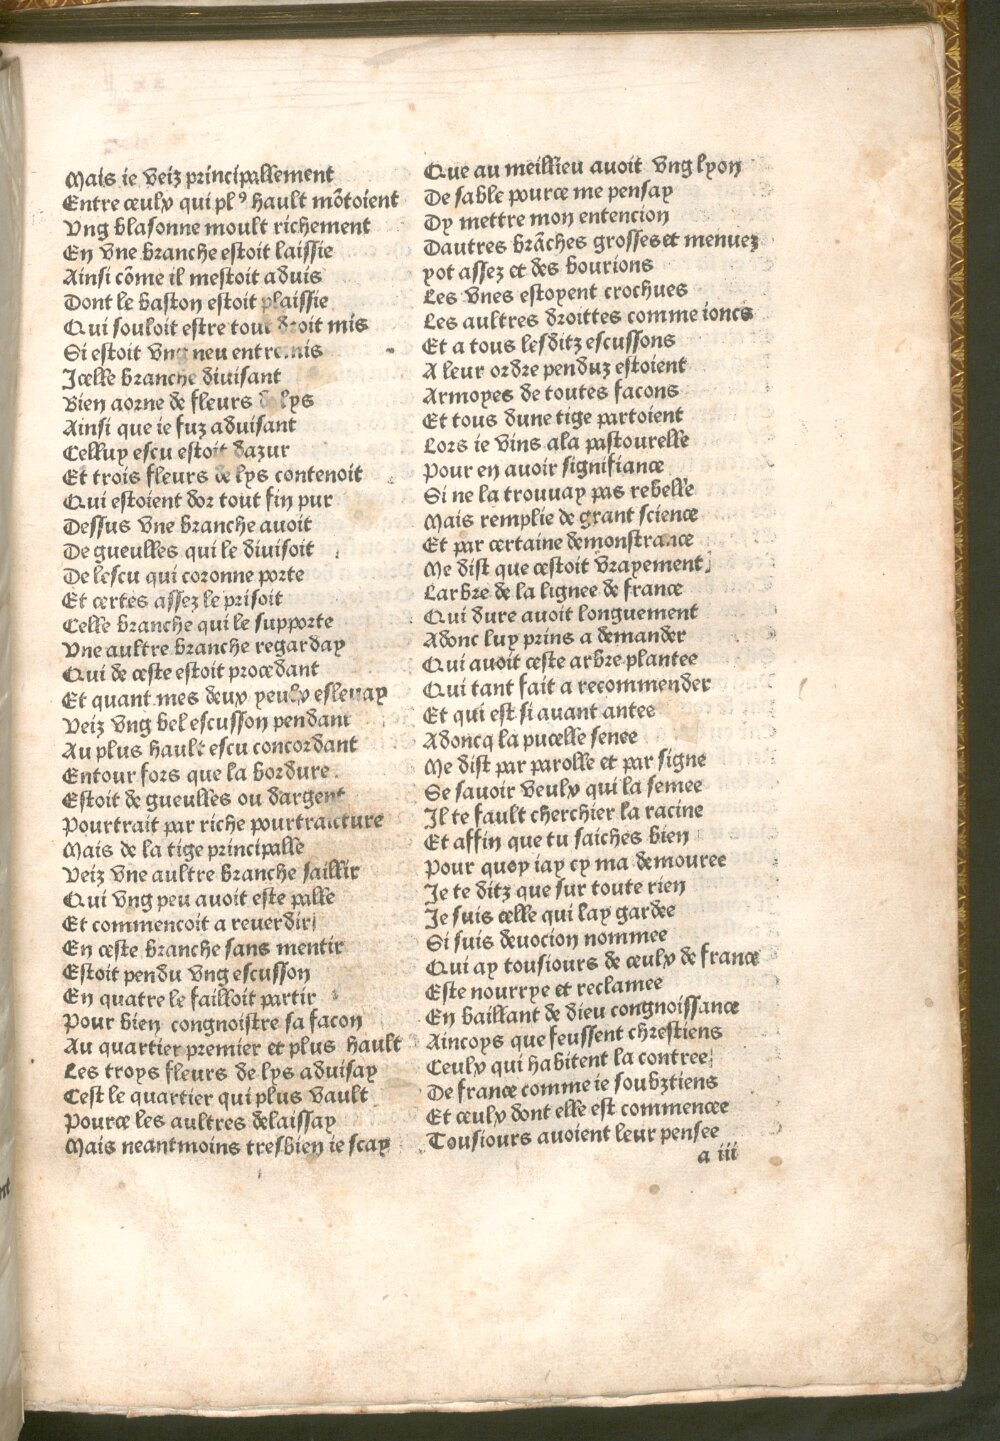 Mais ie veiz principallement
Entre ceulx qui plꝰ hault mõtoient
Vng blasonne moult richement
En vne branche estoit laissie
Ainsi cõme il mestoit aduis
Dont le baston estoit plaissie
Qui souloit estre tout droit mis
Si estoit vng neu entremis
Icelle branche diuisant
Bien aorne de fleurs de lys
Ainsi que ie fuz aduisant
Celluy escu estoit dazur
Et trois fleurs de lys contenoit
Qui estoient dor tout fin pur
Dessus vne branche auoit
De gueulles qui le diuisoit
De lescu qui coronne porte
Et certes assez le prisoit
Celle branche qui le supporte
Vne aultre branche regarday
Qui de ceste estoit procedant
Et quant mes deux yeulx esleuay
Veiz vng bel escusson pendant
Au plus hault escu concordant
Entour fors que la bordure
Estoit de gueulles ou dargent
Pourtrait par riche pourtraicture
Mais de la tige principalle
Veiz vne aultre branche saillir
Qui vng peu auoit este palle
Et commencoit a reuerdir
En ceste branche sans mentir
Estoit pendu vng escusson
En quatre le failloit partir
Pour bien congnoistre sa facon
Au quartier premier et plus hault
Les troys fleurs de lys aduisay
Cest le quartier qui plus vault
Pource les aultres delaissay
Mais neantmoins tresbien ie scay
Que au meillieu auoit vng lyon
De sable pource me pensay
Dy mettre mon entencion
Dautres brãches grosses et menuez
yot assez et des bourions
Les vnes estoyent crochues
Les aultres droittes comme ioncs
Et a tous lesditz escussons
A leur ordre penduz estoient
Armoyes de toutes facons
Et tous dune tige partoient
Lors ie vins ala pastourelle
Pour en auoir signifiance
Si ne la trouuay pas rebelle
Mais remplie de grant science
Et par certaine demonstrance
Me dist que cestoit vrayement
Larbre de la lignee de france
Qui dure auoit longuement
Adonc luy prins a demander
Qui auoit ceste arbre plantee
Qui tant fait a recommender
Et qui est si auant antee
Adoncq la pucelle senee
Me dist par parolle et par signe
Se sauoir veulx qui la semee
Il te fault cherchier la racine
Et affin que tu saiches bien
Pour quoy iay cy ma demouree
Je te ditz que sur toute rien
Je suis celle qui lay gardee
Si suis deuocion nommee
Qui ay tousiours de ceulx de france
Este nourrye et reclamee
En baillant de dieu congnoissance
Aincoys que feussent chrestiens
Ceulx qui habitent la contree
De france comme ie soubztiens
Et ceulx dont elle est commencee
Tousiours auoient leur pensee
a iii